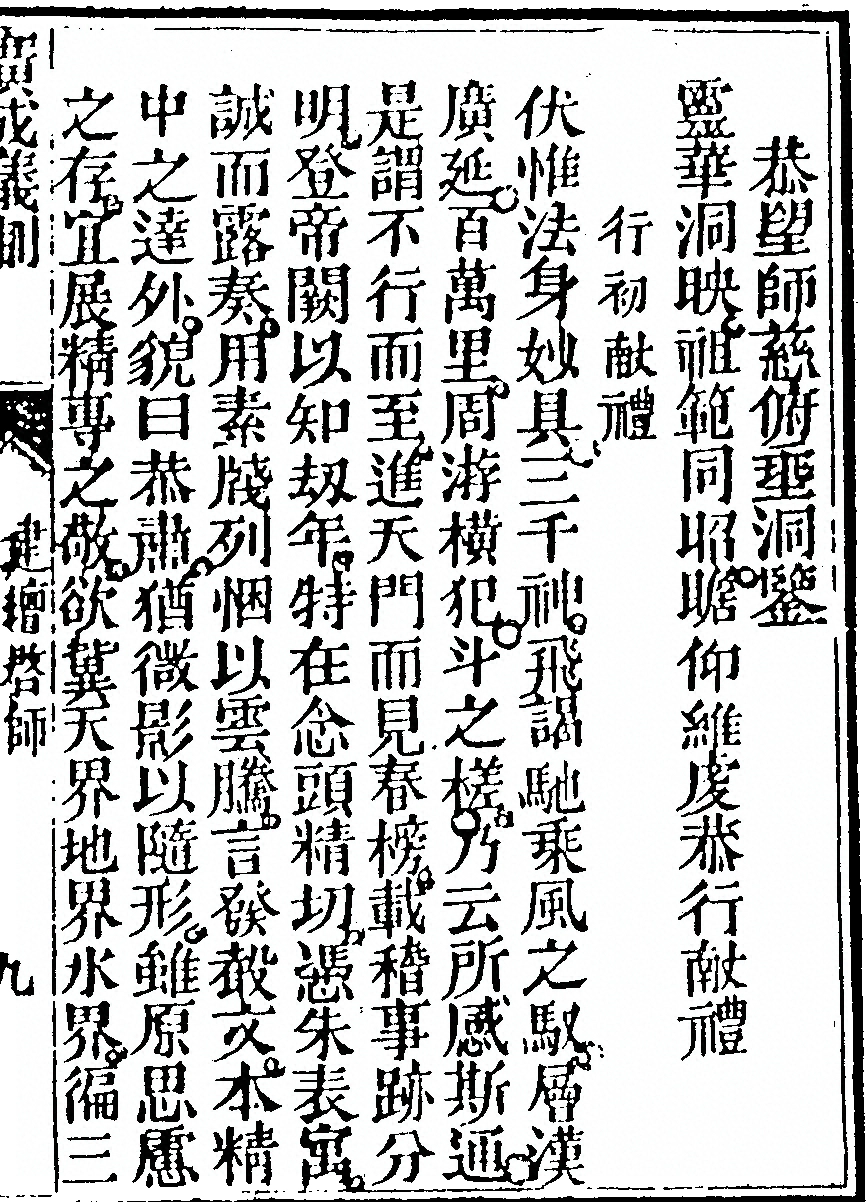 恭望師慈俯垂洞鑒
靈華洞映祖範同昭瞻仰維虔恭行献禮
行初献禮
伏惟法身妙具三千神飛謁馳乘風之馭層漢
廣延百萬里周游橫犯斗之槎乃云所感斯通
是謂不行而至進天門而見春榜載稽事跡分
明登帝闕以知刼年特在念頭精切憑朱表寓
誠而露奏用素牋列悃以雲騰言發越文本精
中之達外貌曰恭肅猶微影以隨形雖原思慮
之存宜展精專之敬欲冀天界地界水界徧三
廣成儀制
建壇啓師
九